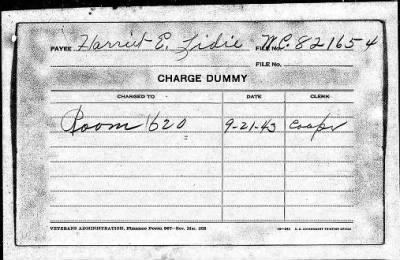 PAYEE Harriet E. Lidie FILE NO. W.C. 821654
FILE NO.
CHARGE DUMMY
CHARGED TO DATE CLERK
Room 1620 9-21-43 Cooper
VETERANS ADMINISTRATION, Finance Form
U. S. GOVERNMENT PRINTING OFFICE